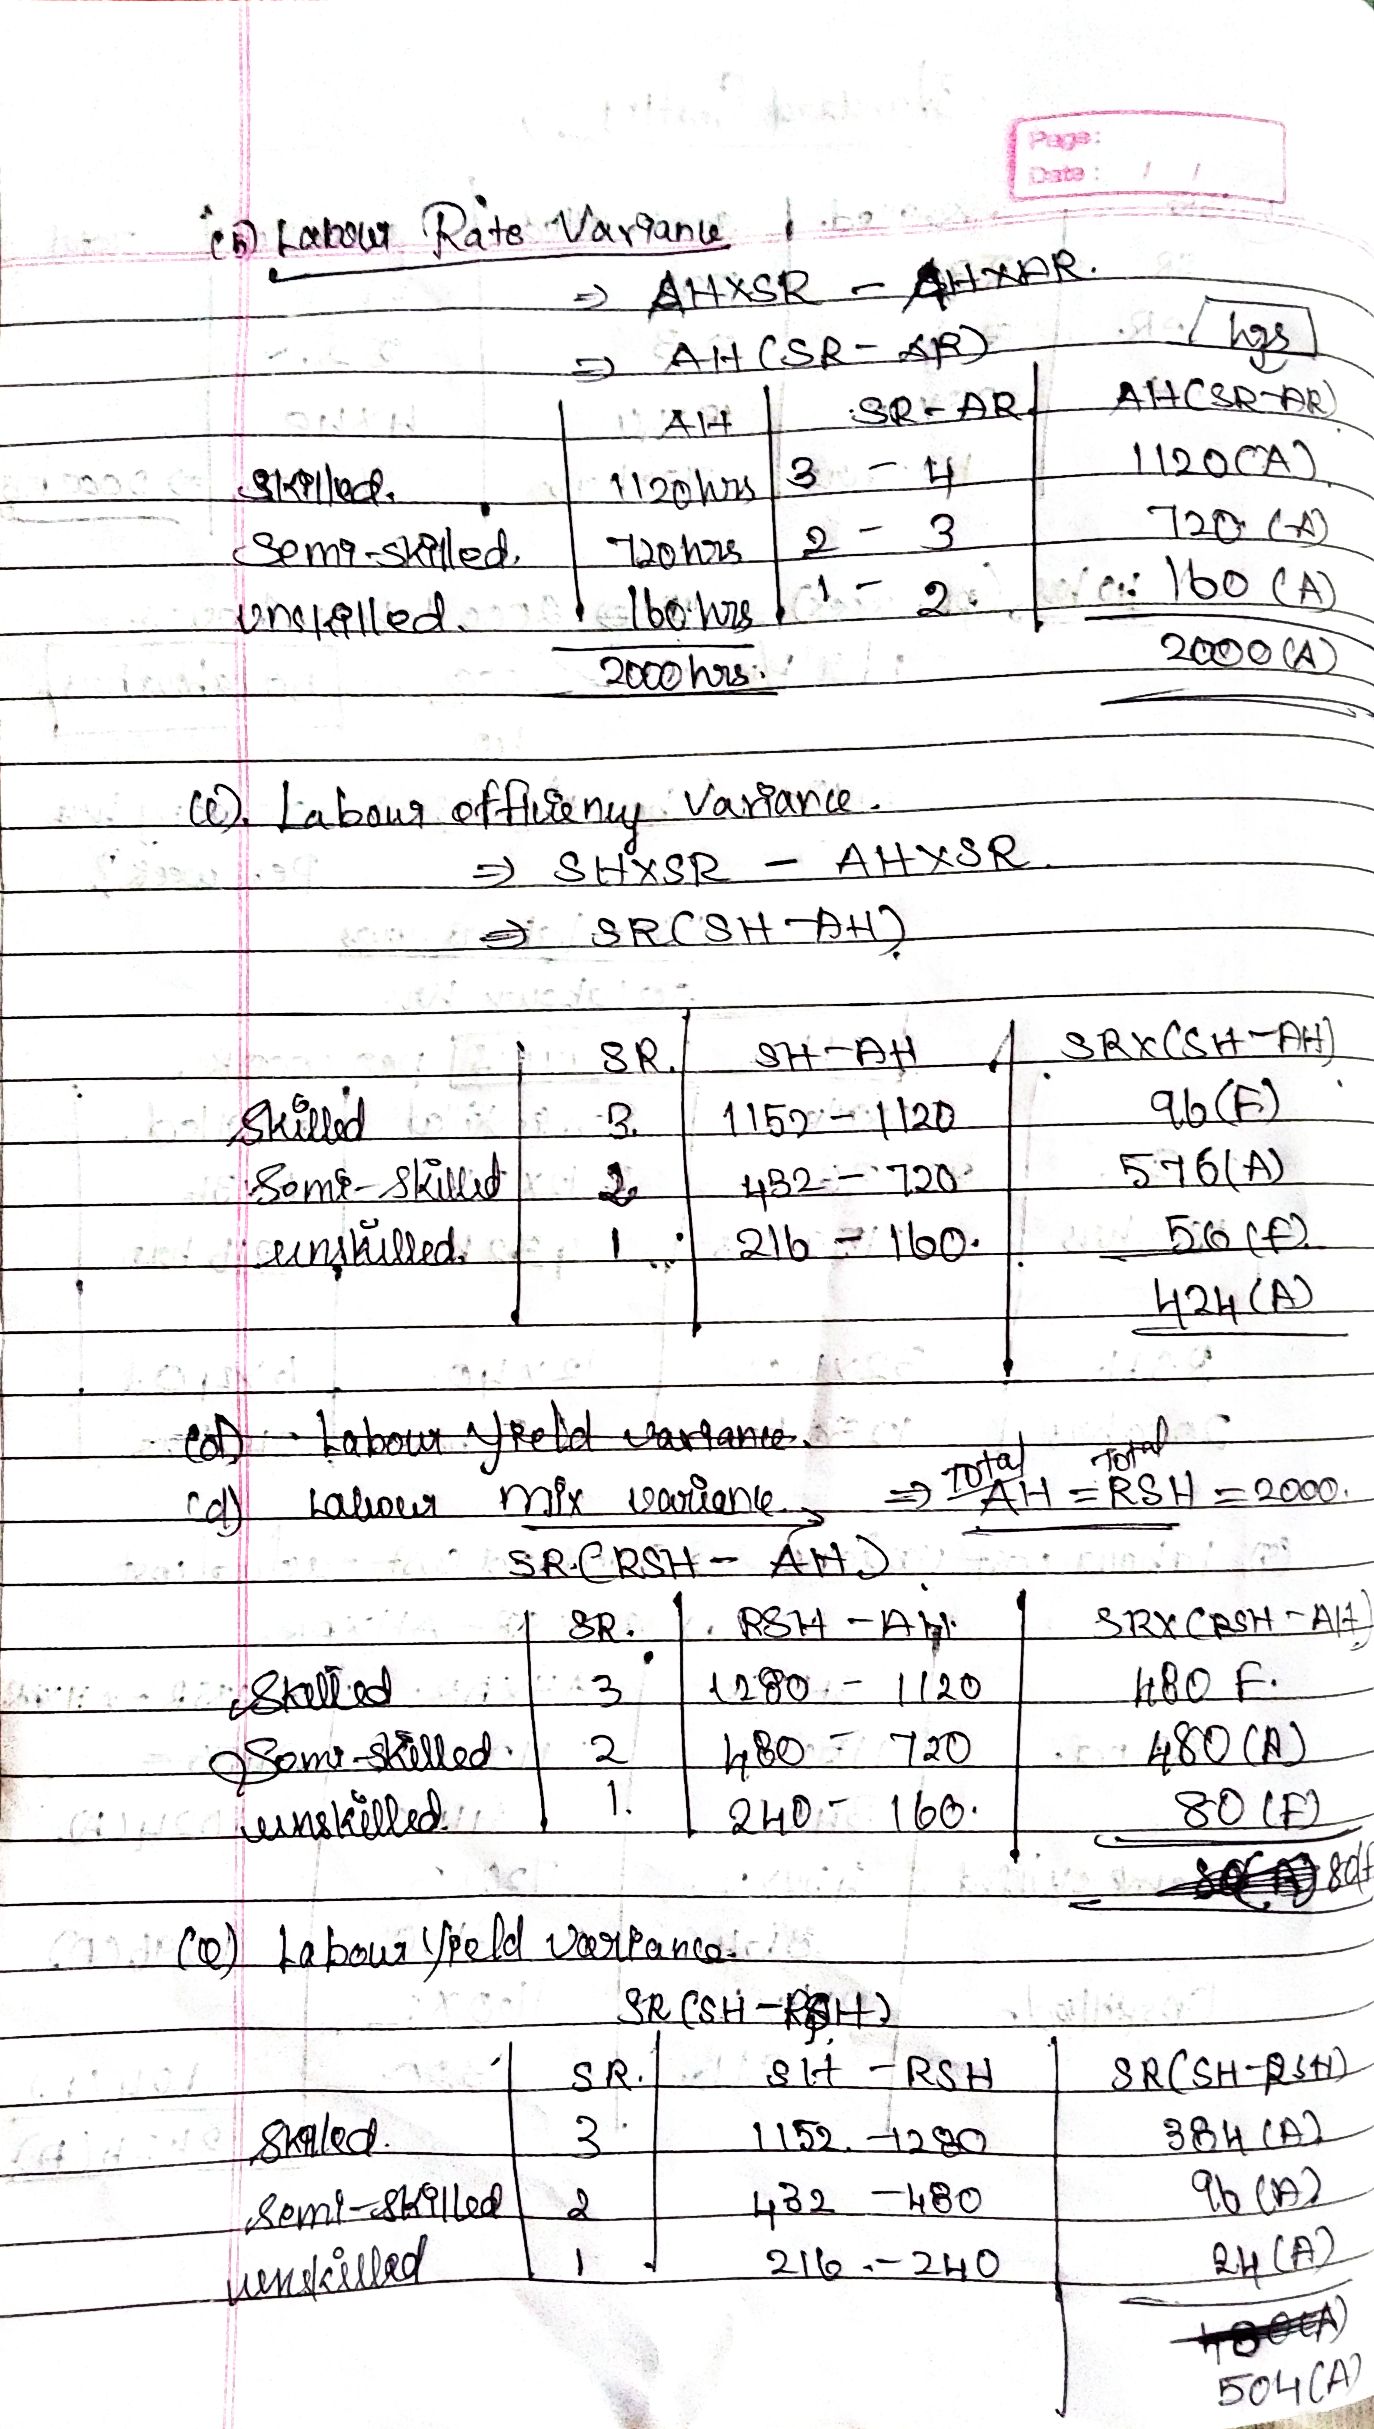 Page:
Date: / /
(b) Labour Rate Variance
⇒ AH×SR - AH×AR.
⇒ AH(SR-AR) hrs
AH SR-AR AH(SR-AR)
Skilled. 1120hrs 3 - 4 1120(A)
Semi-skilled. 720hrs 2 - 3 720 (A)
Unskilled. 160 hrs 1 - 2. 160 (A)
2000hrs. 2000(A)
(c). Labour efficiency Variance.
⇒ SH×SR - AH×SR.
⇒ SR(SH-AH)
SR. SH-AH SR×(SH-AH)
Skilled 3. 1152-1120 96(F)
Semi-skilled 2 432-720 576(A)
unskilled. 1 216-160. 56(F).
424(A)
(d) Labour Yield variance.
(d) Labour mix variance ⇒ Total AH = Total RSH = 2000.
SR.(RSH- AH)
SR. RSH-AH. SR×(RSH-AH)
Skilled 3 1280 - 1120 480 F.
Semi-skilled. 2 480 - 720 480(A)
unskilled. 1. 240 - 160. 80(F)
80(A) 80(F
(e) Labour Yield Variance.
SR(SH-RSH)
SR. SH-RSH SR(SH-RSH)
Skilled. 3 1152.-1280 384(A)
Semi-skilled 2 432-480 96(A)
unskilled 1 216.-240 24(A)
480(A)
504(A)